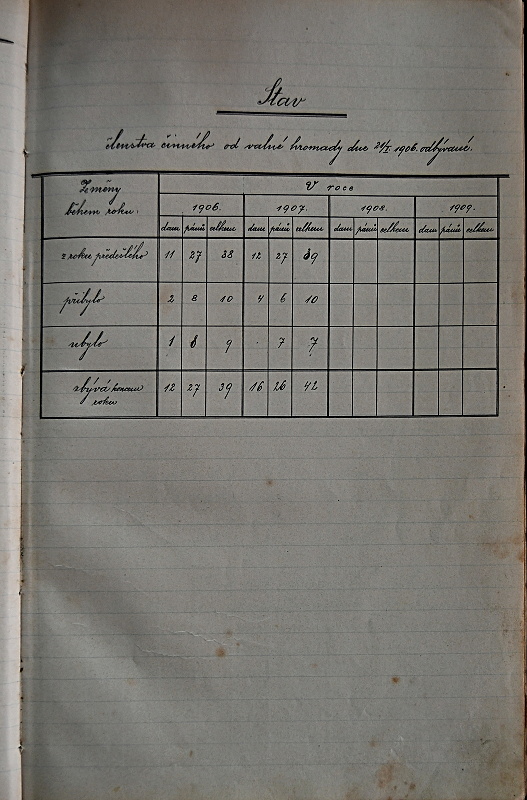 Stav
členstva činného od valné hromady dne 21/I. 1906. odbývané.
Změny během roku: V roce
1906. 1907. 1908. 1909.
dam pánů celkem dam pánů celkem dam pánů celkem dam pánů celkem
z roku předešlého 11 27 38 12 27 39
přibylo 2 8 10 4 6 10
ubylo 1 8 9 . 7 7
zbývá koncem roku 12 27 39 16 26 42